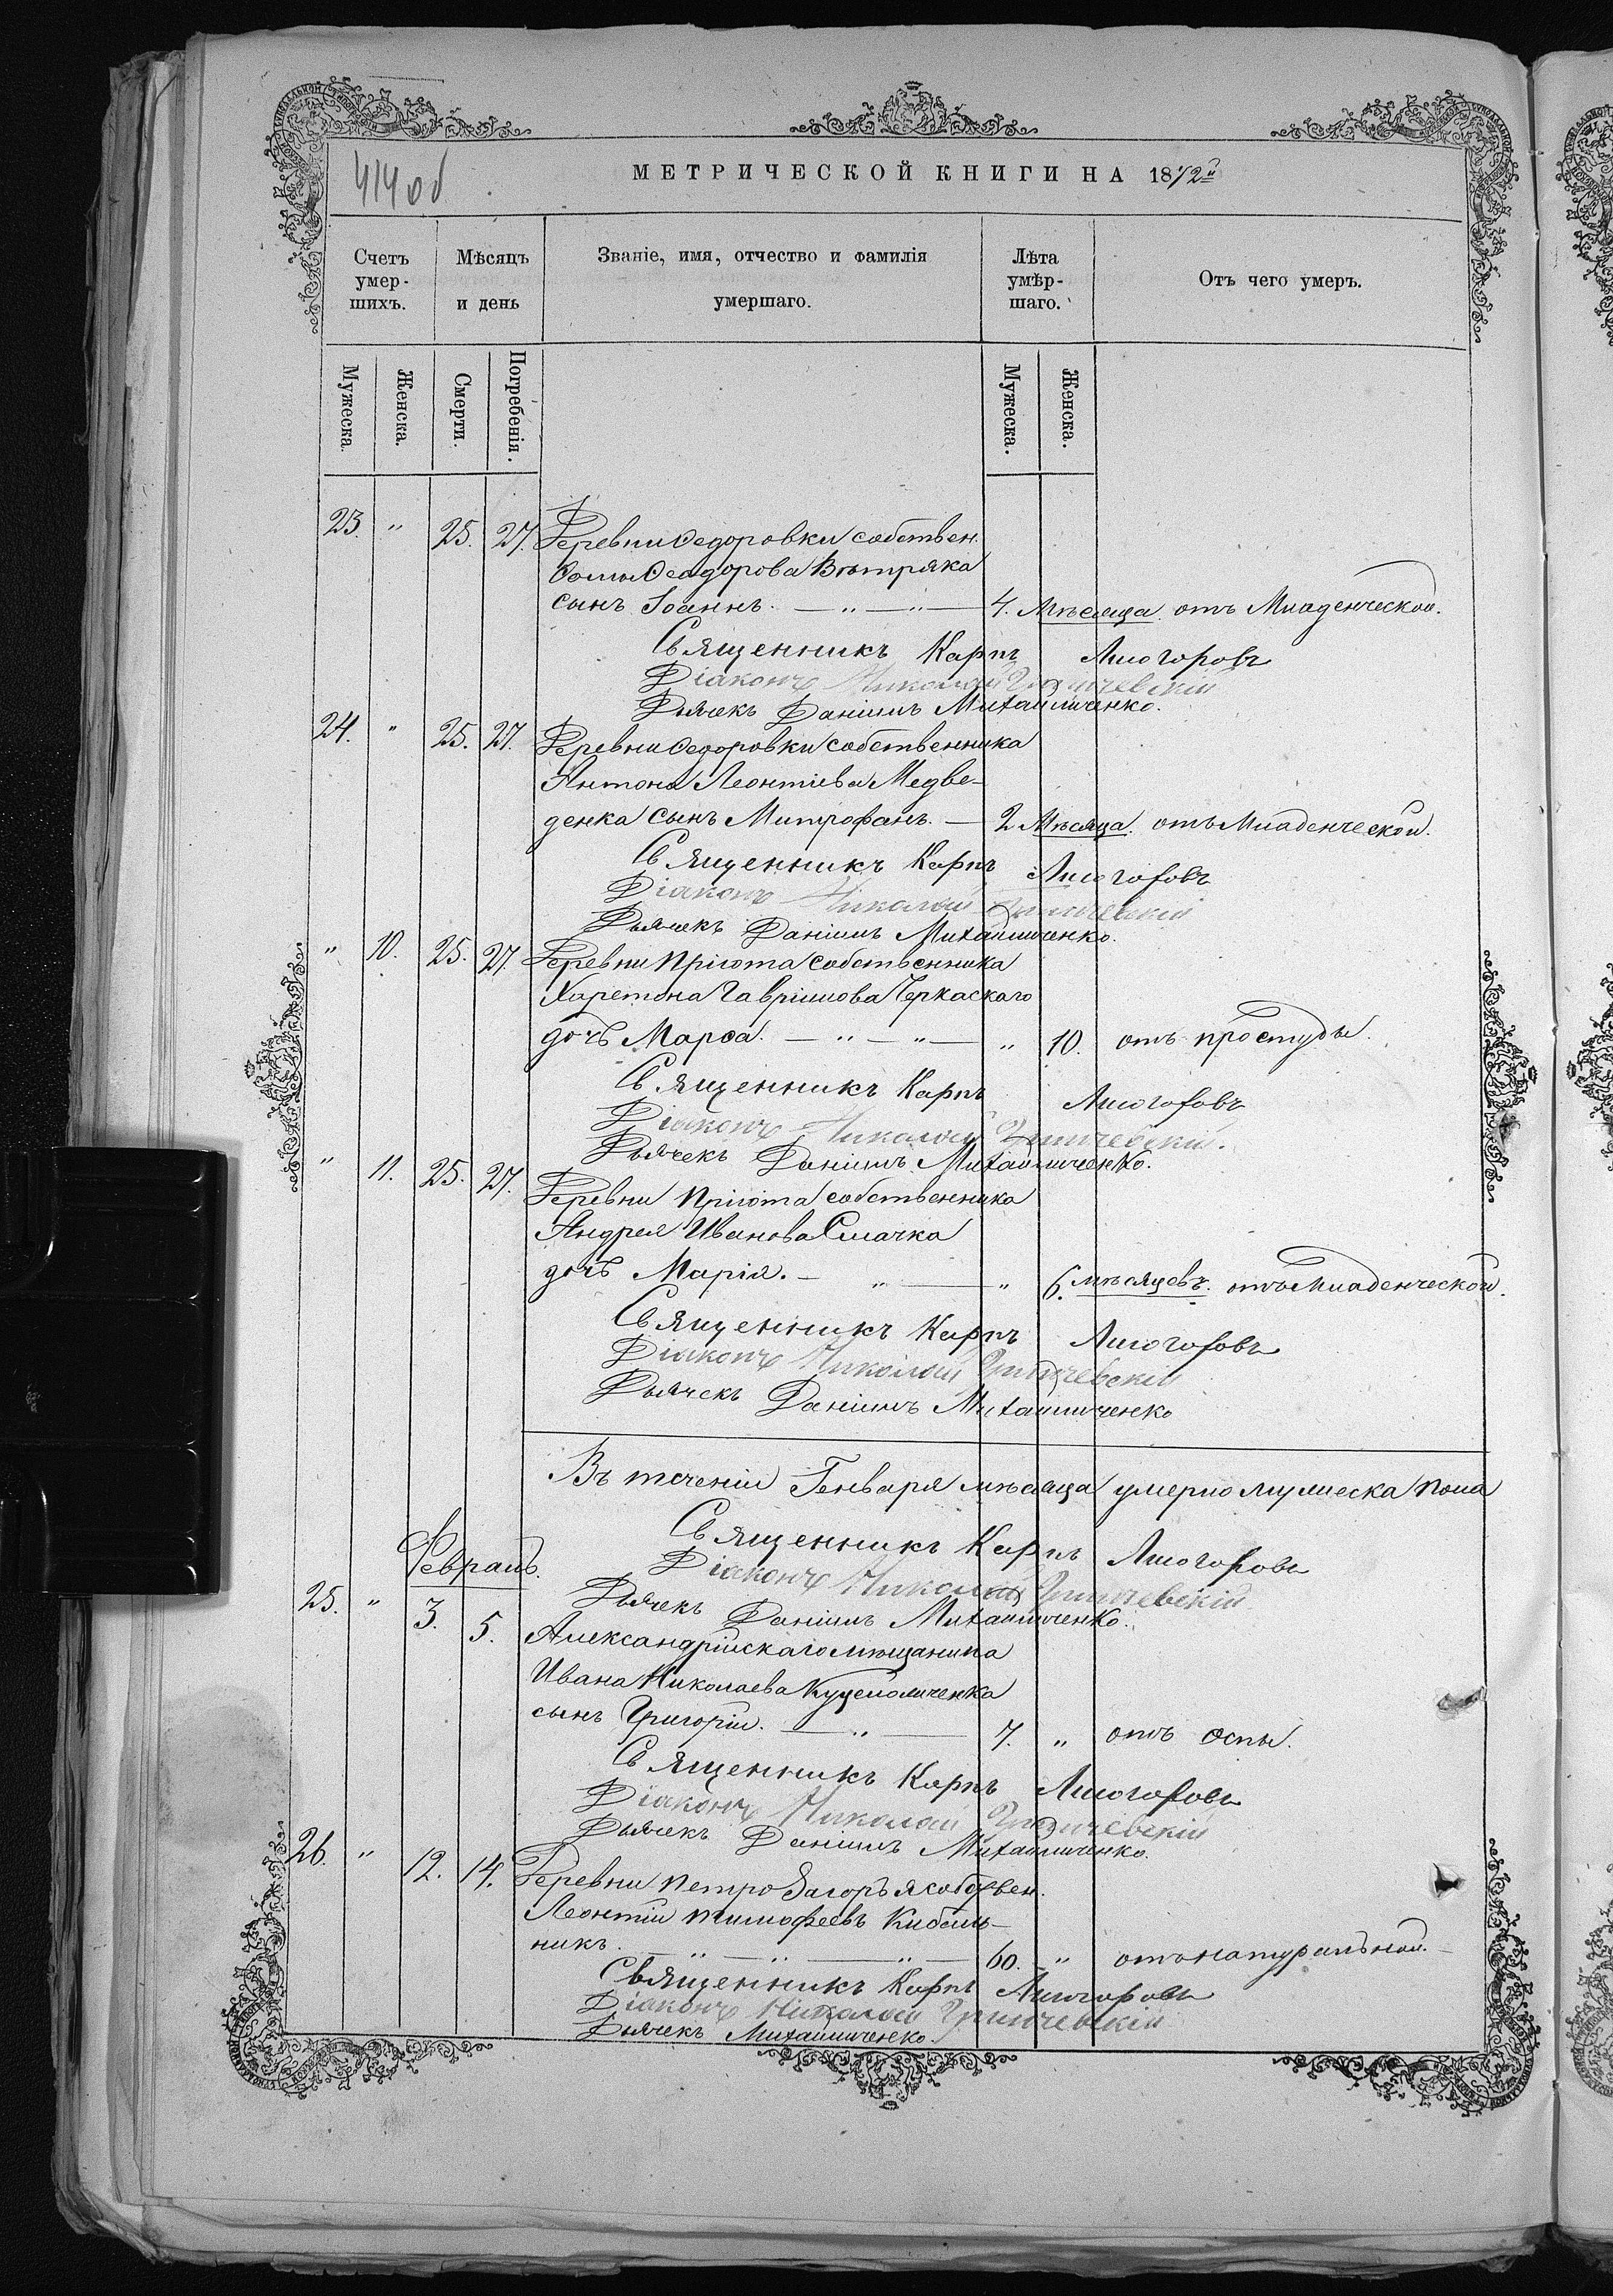 414 об
МЕТРИЧЕСКОЙ КНИГИ НА 1872й
Счетъ умер-шихъ.
Мѣсяцъ и день
Званіе, имя, отчество и фамилія умершаго.
Лѣта умѣр-шаго.
Отъ чего умеръ.
Мужеска.
Женска.
Смерти.
Погребенія.
Мужеска.
Женска.
23. " 25. 27. Деревни Ѳедоровки собствен.
Ѳомы Ѳеодорова Вѣтряка
сынъ Іоаннъ. — " — " — 4. Мѣсяца отъ Младенческой.
Священникъ Карпъ Лисогоровъ
Діаконъ Николай
Дьячекъ Даніилъ Михайличенко.
24. " 25. 27. Деревни Ѳедоровки собственника
Антона Леонтіева Медве-
денка сынъ Митрофанъ. — 2 Мѣсяца. отъ Младенческой.
Священникъ Карпъ Лисогоровъ
Діаконъ Николай
Дьячекъ Даніилъ Михайличенко.
" 10. 25. 27. Деревни Пріюта собственника
Харетона Гавріилова Черкаскаго
дочь Марѳа. — " — " — " 10. отъ простуды.
Священникъ Карпъ Лисогоровъ
Діаконъ Николай
Дьячекъ Даніилъ Михайличенко.
" 11. 25. 27. Деревни Пріюта собственника
Андрея Иванова Слачка
дочь Марія. — " — " 6. мѣсяцевъ. отъ Младенческой.
Священникъ Карпъ Лисогоровъ
Діаконъ Николай
Дьячекъ Даніилъ Михайличенко
Въ теченіи Генваря мѣсяца умерло мужеска пола
Священникъ Карпъ Лисогоровъ
Февраль.
Діаконъ Николай
Дьячекъ Даніилъ Михайличенко.
25. " 3. 5. Александрійскаго мѣщанина
Ивана Николаева
сынъ Григорій. — " — 7. " отъ оспы.
Священникъ Карпъ Лисогоровъ
Діаконъ Николай
Дьячекъ Даніилъ Михайличенко.
26. " 12. 14. Деревни Петро Загорья собствен.
Леонтій Тимофеевъ Кибаль-
никъ. — " — " — " — 60. " отъ натуральной.
Священникъ Карпъ Лисогоровъ
Діаконъ Николай
Дьячекъ Михайличенко.